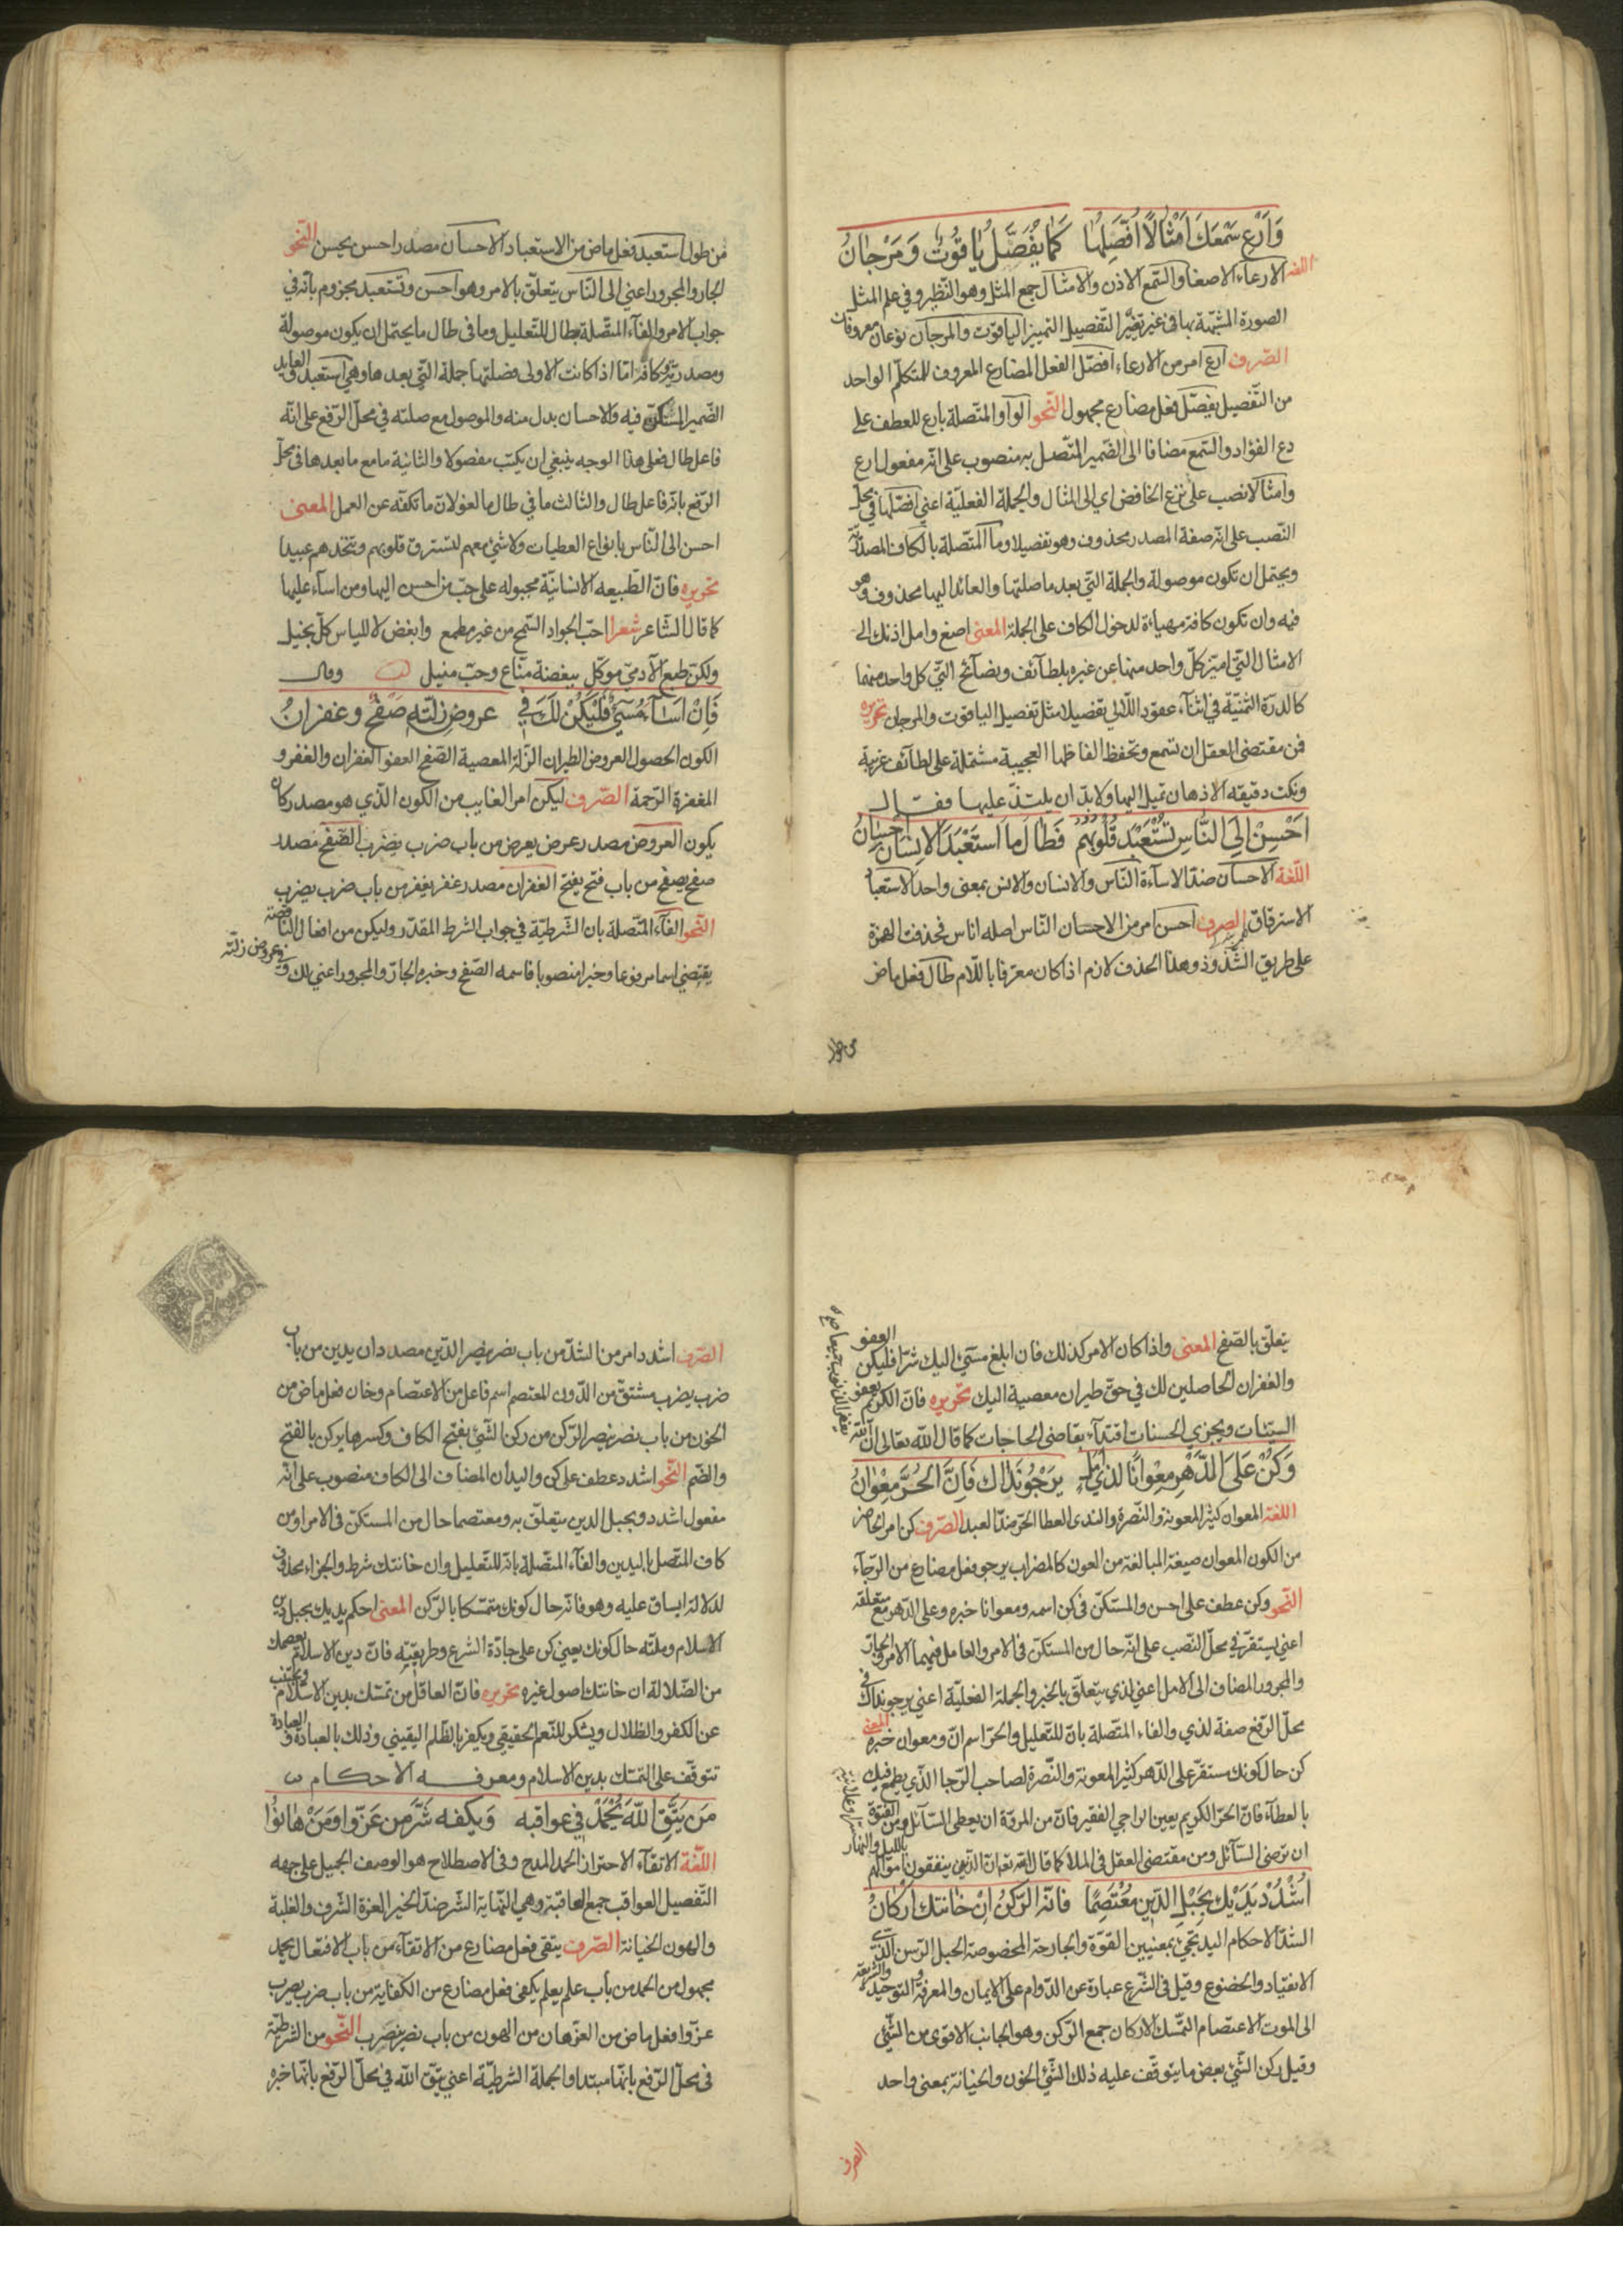 وَارْعِ سَمْعَكَ اَمْثَالًا اُفَصِّلُهَا كَمَا يُفَصَّلُ يَاقُوتٌ وَمَرْجَانُ
اللغة الارعاء الاصغا والسّمع الاذن والامثال جمع المثل وهو النّظير وفى علم المثل
الصورة المشبّهة بها فى غير تغيّر التّفصيل التمييز الياقوت والمرجان نوعان معروفان
الصّرف ارع امر من الارعاء افصّل الفعل المضارع المعروف للمتكلّم الواحد
من التّفصيل يفصّل فعل مضارع مجهول النّحو الواو المتّصلة بارع للعطف على
دع الفؤاد والسّمع مضافا الى الضّمير المتّصل به منصوب على انّه مفعول ارع
وامثالا نصب على نزع الخافض اي الى المثال والجملة الفعليّة اعني افصّلها فى محلّ
النّصب على انّه صفة المصدر محذوف وهو تفصيلا وما المتّصلة بالكاف المصدريّة
ويحتمل ان تكون موصولة والجملة الّتي بعد ما صلتها والعائد اليها محذوف وهو
فيه وان تكون كافة مهياءة لدخول الكاف على الجملة المعنى اصغ وامل اذنك الى
الامثال الّتي اميّز كلّ واحد منها عن غيره بلطائف ونصائح الّتي كل واحد منهما
كالدرة الثمنيّة فى اثناء عقود اللّالي تفصيلا مثل تفصيل الياقوت والمرجان تحريره
فمن مقتضى العقل ان تسمع وتحفظ الفاظها العجيبة مشتملة على لطائف غريبة
ونكت دقيقه الاذهان تميل اليها ولا بدّ ان يلتذّ عليها فقال
اَحْسِنْ اِلَى النَّاسِ تَسْتَعْبِدْ قُلُوبَهُمُ فَطَالَ مَا اسْتَعْبَدَ الْاِنْسَانَ اِحْسَانُ
اللّغة الاحسان ضدّ الاسآءة النّاس والانسان والانس بمعنى واحد الاستعبا
الاسترقاق الصرف احسن امر من الاحسان النّاس اصله اناس فحذفت الهمزة
على طريق الشّذوذ وهذا الحذف لازم اذا كان معرّفا باللّام طال فعل ماض
من طول
من طول استعبد فعل ماض من الاستعباد الاحسان مصدر احسن يحسن النّحو
الجار والمجرور اعني الى النّاس يتعلّق بالامر وهو احسن وتستعبد مجزوم بأنّه في
جواب الامر والفآء المتّصلة بطال للتّعليل وما فى طال ما يحتمل ان يكون موصولة
ومصدريّة وكافة امّا اذا كانت الاولى فصلتها جملة الّتي بعدها وهي استعبد والعايد
الضّمير المستكن فيه والاحسان بدل منه والموصول مع صلته في محلّ الرّفع على انّه
فاعل طال فعلى هذا الوجه ينبغي ان يكتب مفصولا والثانية ما مع ما بعدها فى محلّ
الرّفع بانّه فاعل طال والثالث ما في طال ما لغو لانّ ما تكفّه عن العمل المعنى
احسن الى النّاس بانواع العطيات ولاشئ معهم لتسترق قلوبهم وتتخذهم عبيدا
تحريره فانّ الطّبيعه الانسانيّة مجبوله على حبّ من احسن اليها ومن اسآء عليها
كما قال الشاعر شعرا احبّ الجواد السّمح من غير مطمع وابغض لا للياس كلّ بخيل
ولكنّ طبع الآدميّ موكّل ببغضة منّاع وحبّ منيل وقال
فَاِنْ اَسَآءَ مُسِيٌ فَلْيَكُنْ لَكَ فِي عروضِ زلّتهِ صَفْحٌ وغفرانُ
الكون الحصول العروض الطيران الزّلة المعصية الصّفح العفو الغفران والغفر و
المغفرة الرّحمة الصّرف ليكن امر الغايب من الكون الّذي هو مصدر كان
يكون العروض مصدر عرض يعرض من باب ضرب يضرب الصّفح مصدر
صفح يصفح من باب فتح يفتح الغفران مصدر غفر يغفر من باب ضرب يضرب
النّحو الفآء المتّصلة بان الشّرطيّة في جواب الشرط المقدّر وليكن من افعال النّاقصة
يقتضي اسما مرفوعا وخبرا منصوبا فاسمه الصّفح وخبره الجارّ والمجرور اعني لك وفي عروض زلّته
يتعلّق بالصّفح المعنى واذا كان الامر كذلك فان ابلغ مسيئ اليك شرّا فليكن العفو
والغفران الحاصلين لك في حقّ طيران معصية اليك تحريره فانّ الكريم يعفو
السيّئات ويجزي الحسنات اقتدآء بقاضي الحاجات كما قال الله تعالى انّ اللّه يغفر الذنوب جميعا
وَكُنْ عَلَى الدَّهْرِ مِعْوَانًا لِذِي اَمَلٍ يَرْجُو نَدَاكَ فَاِنَّ الْحُرَّ مِعْوَانُ
اللغة المعوان كثير المعونة والنّصرة والندى العطا الحرّ ضدّ العبد الصّرف كن امر الحاضر
من الكون المعوان صيغة المبالغة من العون كالمضراب يرجو فعل مضارع من الرّجآء
النّحو وكن عطف على احسن والمستكنّ فى كن اسمه ومعوانا خبره وعلى الدّهر مع متعلقه
اعني يستقرّ في محلّ النّصب على انّه حال من المستكنّ فى الامر والعامل فيهما الامر والجارّ
والمجرور المضاف الى الامل اعني لذي يتعلّق بالخبر والجملة الفعليّة اعني يرجو نداك فى
محلّ الرّفع صفة لذي والفاء المتّصلة بانّ للتّعليل والحرّ اسم انّ ومعوان خبره المعنى
كن حال كونك مستقرّ على الدّهر كثير المعونة والنّصرة لصاحب الرّجا الّذي يطمع فيك
بالعطآء فانّ الحرّ الكريم يعين الراجي الفقير فانّ من المروّة ان يعطى السّآئل ومن الفتوّة
ان ترضى السّآئل ومن مقتضى العقل فى الملأ كما قال اللّه تعالى الّذين ينفقون اموالهم بالليل والنهار
اُشْدُدْ يَدَيْكَ بِحَبْلِ الدِّينِ مُعْتَصِمًا فَانّهُ الرّكنُ اِنْ خَانتكَ اَرْكَانُ
الشدّ الاحكام اليد تجيئ بمعنيين القوّة والجارحة المخصوصة الحبل الرّسن الدّين
الانقياد والخضوع وقيل فى الشّرع عبارة عن الدّوام على الايمان والمعرفة والتوحيد والشريعة
الى الموت الاعتصام التمسّك الاركان جمع الرّكن وهو الجانب الاقوى من الشّيئ
وقيل ركن الشّيئ بعض ما يتوقّف عليه ذلك الشّيئ الخون والخيانة بمعنى واحد
الصرف
الصّرف اشدد امر من الشدّ من باب نصر ينصر الدّين مصدر دان يدين من باب
ضرب يضرب مشتقّ من الدّون المعتصم اسم فاعل من الاعتصام وخان فعل ماض من
الخون من باب نصر ينصر الرّكن من ركن الشّيئ بفتح الكاف وكسرها يركن بالفتح
والضّم النّحو اشدد عطف على كن واليدان المضاف الى الكاف منصوب على انّه
مفعول اشدد وبحبل الدين متعلّق به ومعتصما حال من المستكنّ فى الامر او من
كاف المتّصل باليدين والفآء المتّصلة بانّه للتّعليل وان خانتك شرط والجزاء محذوف
لدلالة ايساق عليه وهو فانّه حال كونك متمسّكا بالرّكن المعنى احكم يديك بحبل دين
الاسلام وملّته حال كونك يعني كن على جادّة الشرع وطريقته فانّ دين الاسلام يعصمك
من الضّلالة ان خانتك اصول غيره تحريره فانّ العاقل من تمسّك بدين الاسلام ويجتنب
عن الكفر والظلال ويشكر للنّعم الحقيقي ويكفر بالظّلم اليقيني وذلك بالعبادة والعبادة
تتوقّف على التمسّك بدين الاسلام ومعرفه الاحكام
مَن يَتَّقِ اللّهَ يُحْمَدْ في عَواقبه وَيَكفه شَرّ مَن عَزّوا وَمَنْ هَانُوُا
اللّغة الاتقآء الاحتراز الحمد المدح وفى الاصطلاح هو الوصف الجميل على جهه
التّفصيل العواقب جمع العاقبة وهي النّهاية الشر ضدّ الخير العزة الشّرف والغلبة
والهون الخيانة الصّرف يتقى فعل مضارع من الاتقآء من باب الافتعال يحمد
مجهول من الحمد من باب علم يعلم يكفى فعل مضارع من الكفاية من باب ضرب يضرب
عزّوا فعل ماض من العزّ هان من الهون من باب نصر ينصر النّحو من الشرطيّة
فى محلّ الرّفع بانّها مبتدا والجملة الشرطيّة اعني يتّق اللّه في محلّ الرّفع بانّها خبره